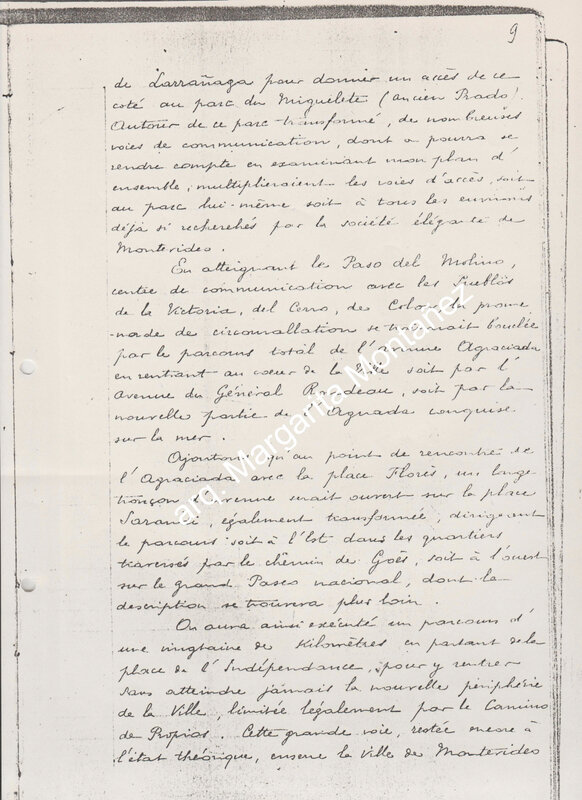 9
de Larrañaga pour donner un accès de ce
coté au parc du Miguelete (ancien Prado).
Autour de ce parc transformé, de nombreuses
voies de communication, dont on pourra se
rendre compte en examinant mon plan d'
ensemble, multiplieraient les voies d'accès, soit
au parc lui-même soit à tous les environs
déjà si recherchés par la société élégante de
Montevideo.
En atteignant le Paso del Molino,
centre de communication avec les Pueblos
de la Victoria, del Cerro, de Colon, la prome
-nade de circonvallation se trouverait bouclée
par le parcours total de l'avenue Agraciada
en rentrant au coeur de la Ville soit par l'
Avenue du Général Rondeau, soit par la
nouvelle partie de l'Aguada conquise
sur la mer.
Ajoutons qu'au point de rencontre de
l'Agraciada avec la place Florès, un large
tronçon d'avenue serait ouvert sur la place
Sarandi, également transformée, dirigeant
le parcours soit à l'Est dans les quartiers
traversés par le chemin de Goës, soit à l'ouest
sur le grand Paseo nacional, dont la
description se trouvera plus loin.
On aura ainsi exécuté un parcours d'
une vingtaine de Kilomètres en partant de la
place de l'Indépendance, pour y rentrer
sans atteindre jamais la nouvelle périphérie
de la Ville, limitée légalement par le Camino
de Propios. Cette grande voie, restée encore à
l'état théorique, enserre la Ville de Montevideo
arq. Margarita Montañez